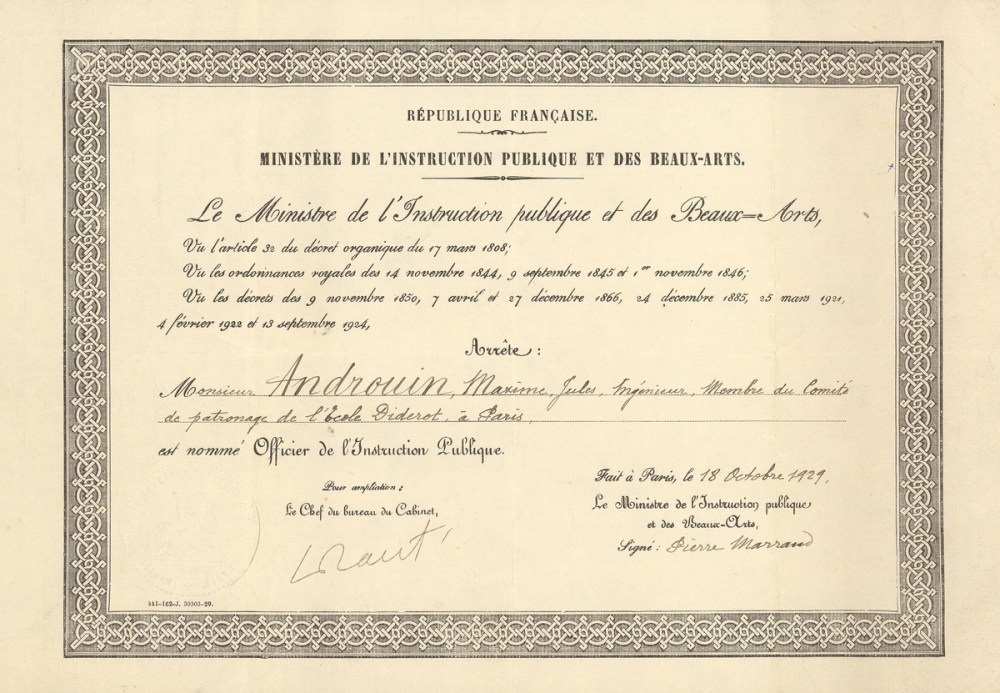 RÉPUBLIQUE FRANÇAISE.
MINISTÈRE DE L'INSTRUCTION PUBLIQUE ET DES BEAUX-ARTS.
Le Ministre de l'Instruction publique et des Beaux=Arts,
Vu l'article 32 du décret organique du 17 mars 1808;
Vu les ordonnances royales des 14 novembre 1844, 9 septembre 1845 et 1er novembre 1846;
Vu les décrets des 9 novembre 1850, 7 avril et 27 décembre 1866, 24 décembre 1885, 25 mars 1921,
4 février 1922 et 13 septembre 1924,
Arrête :
Monsieur Androuin, Maxime, Jules, Ingénieur, Membre du Comité
de patronage de l'École Diderot, à Paris,
est nommé Officier de l'Instruction Publique.
Fait à Paris, le 18 Octobre 1929.
Pour ampliation :
Le Chef du bureau du Cabinet,
Le Ministre de l'Instruction publique
et des Beaux-Arts,
Signé : Pierre Marraud
441-162-J. 30303-29.